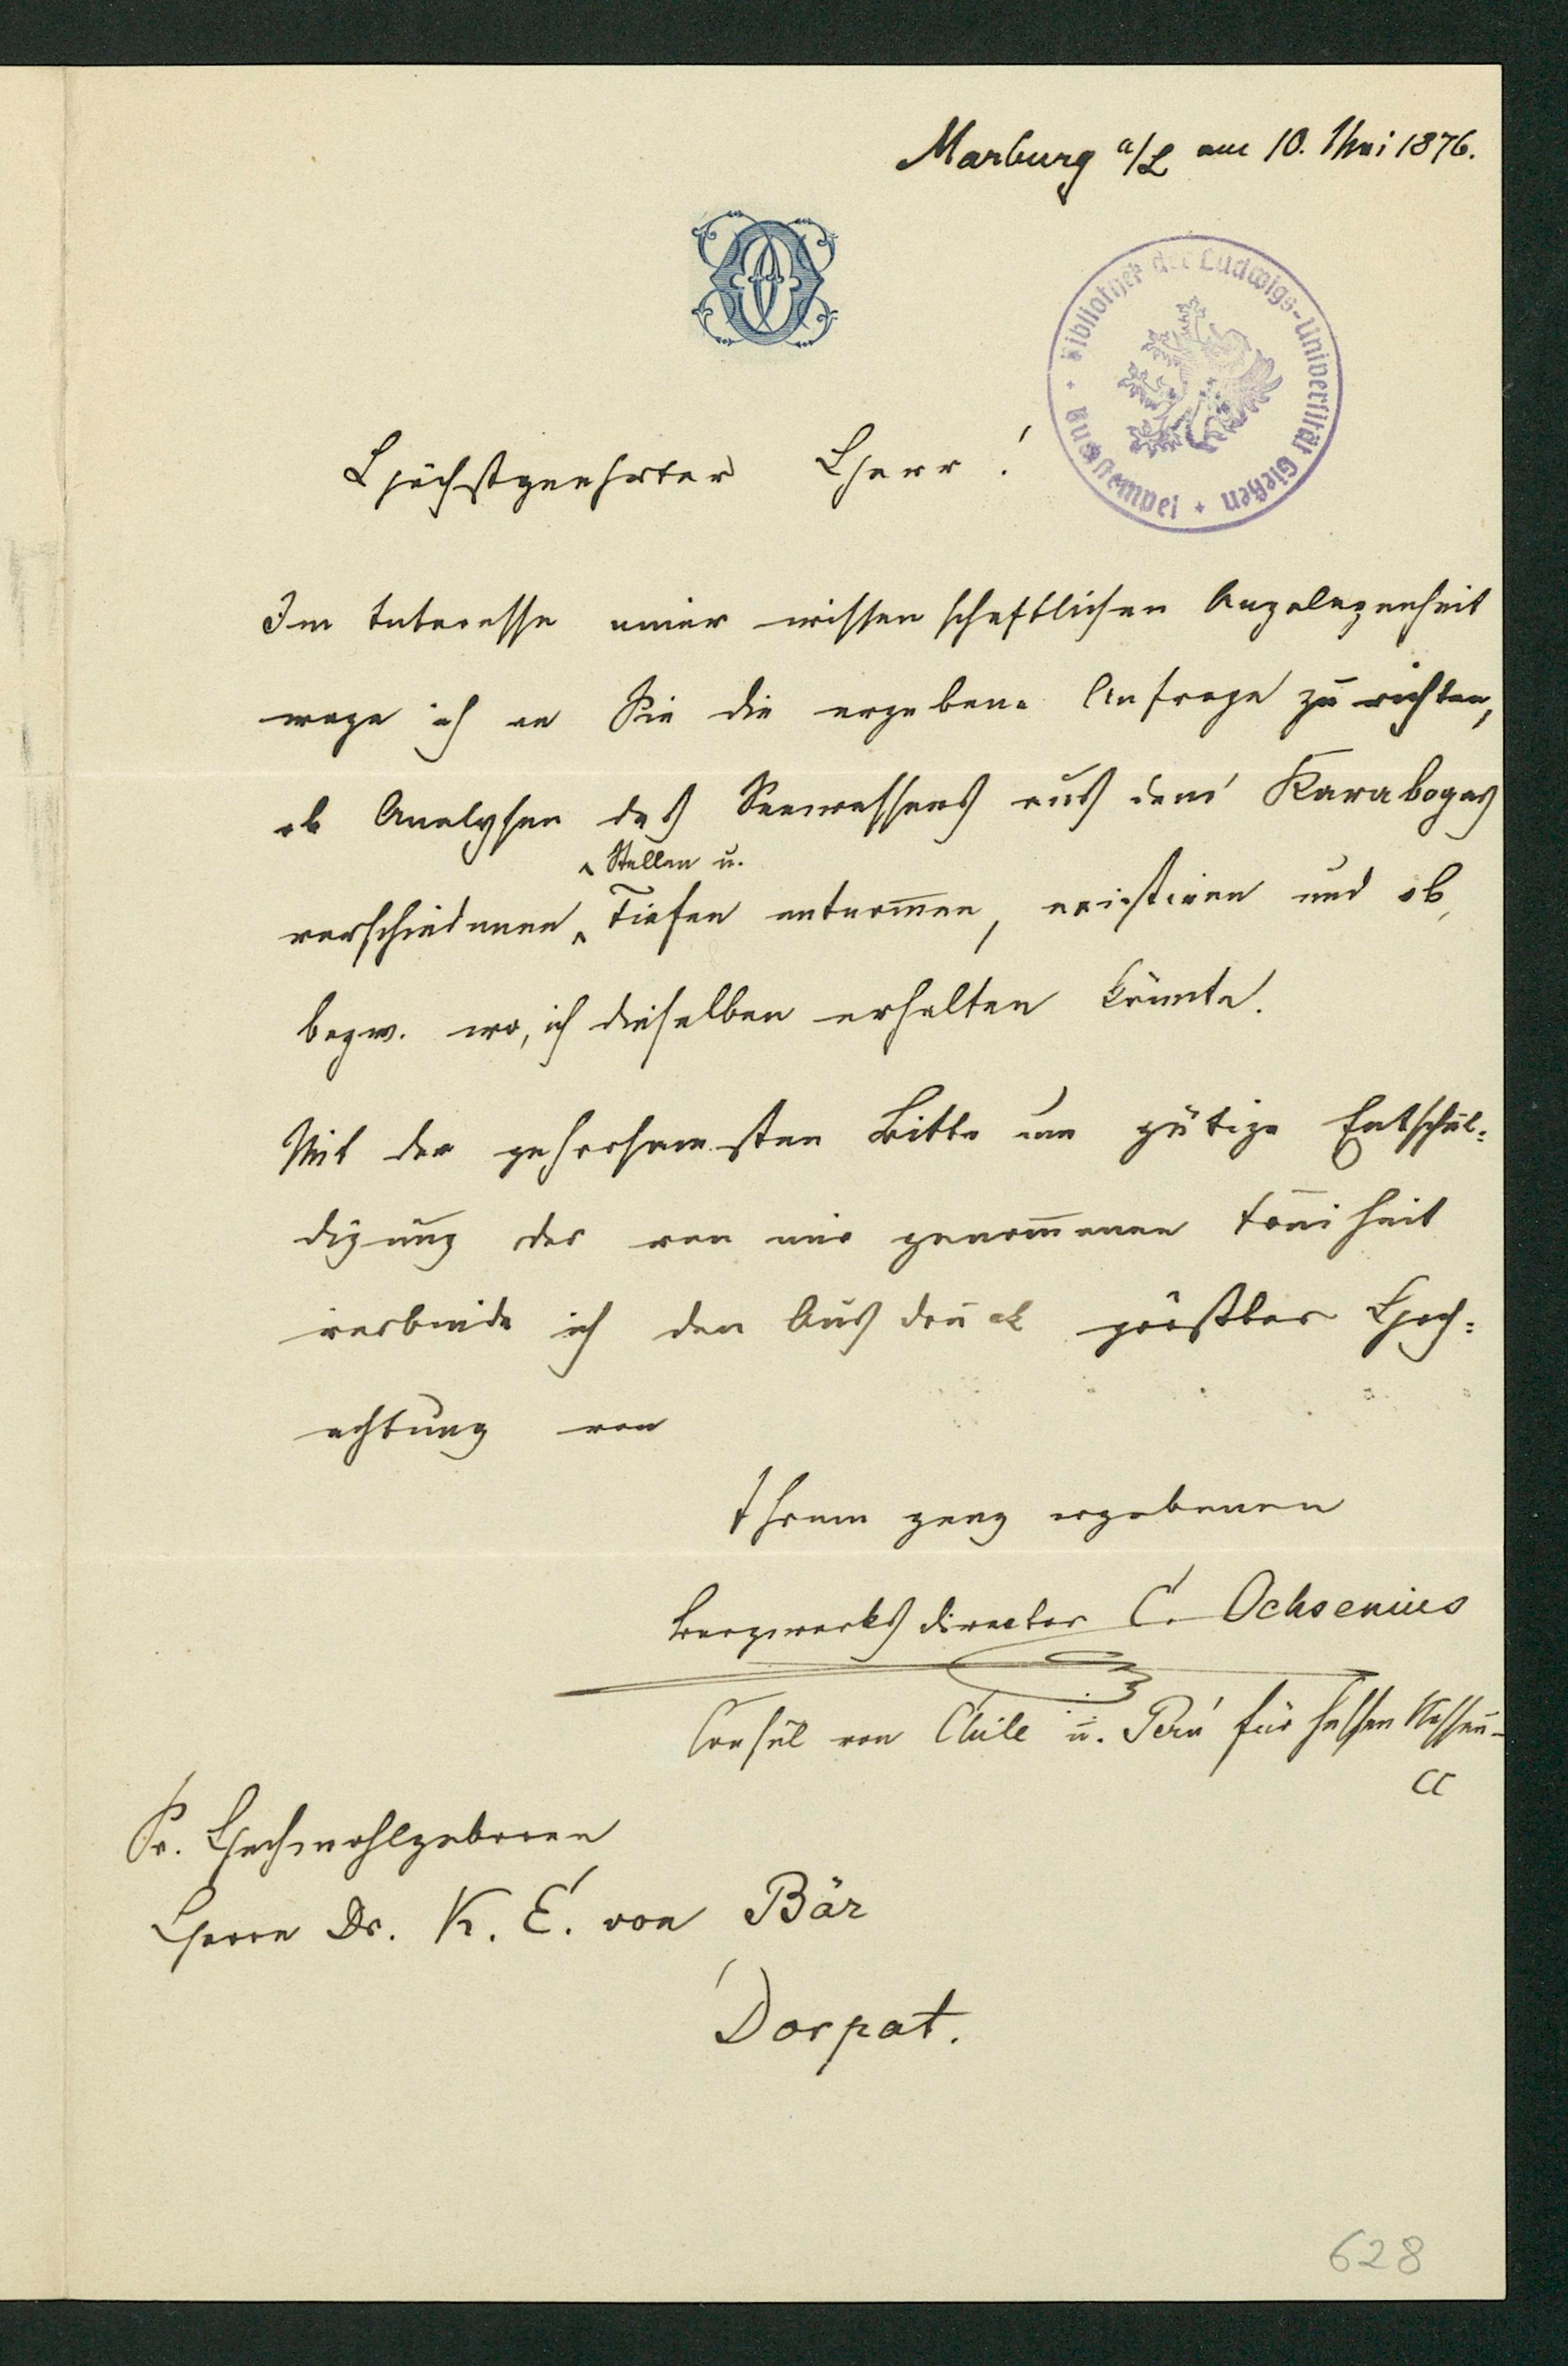 Marburg a/L am 10. Mai 1876.
Bibliothek der Ludwigs-Universität Gießen + Austempel +
Höchstgeehrter Herr!
Im Interesse einer wissenschaftlichen Angelegenheit
wage ich an Sie die ergebene Anfrage zu richten,
ob Analysen des Seewassers aus dem Karabogas
Stellen u.
verschiedenen Tiefen entnommen, existiren und ob,
bezw. wo, ich dieselben erhalten könnte.
Mit der gehorsamsten Bitte um gütige Entschul-
digung der von mir genommenen Freiheit
verbinde ich den Ausdruck größter Hoch-
achtung von
Ihrem ganz ergebenen
Bergwerksdirector C. Ochsenius
Consul von Chile u. Perú für Hessen Nassau-
Sr. Hochwohlgeboren
Herrn Dr. K. E. von Bär
Dorpat.
628